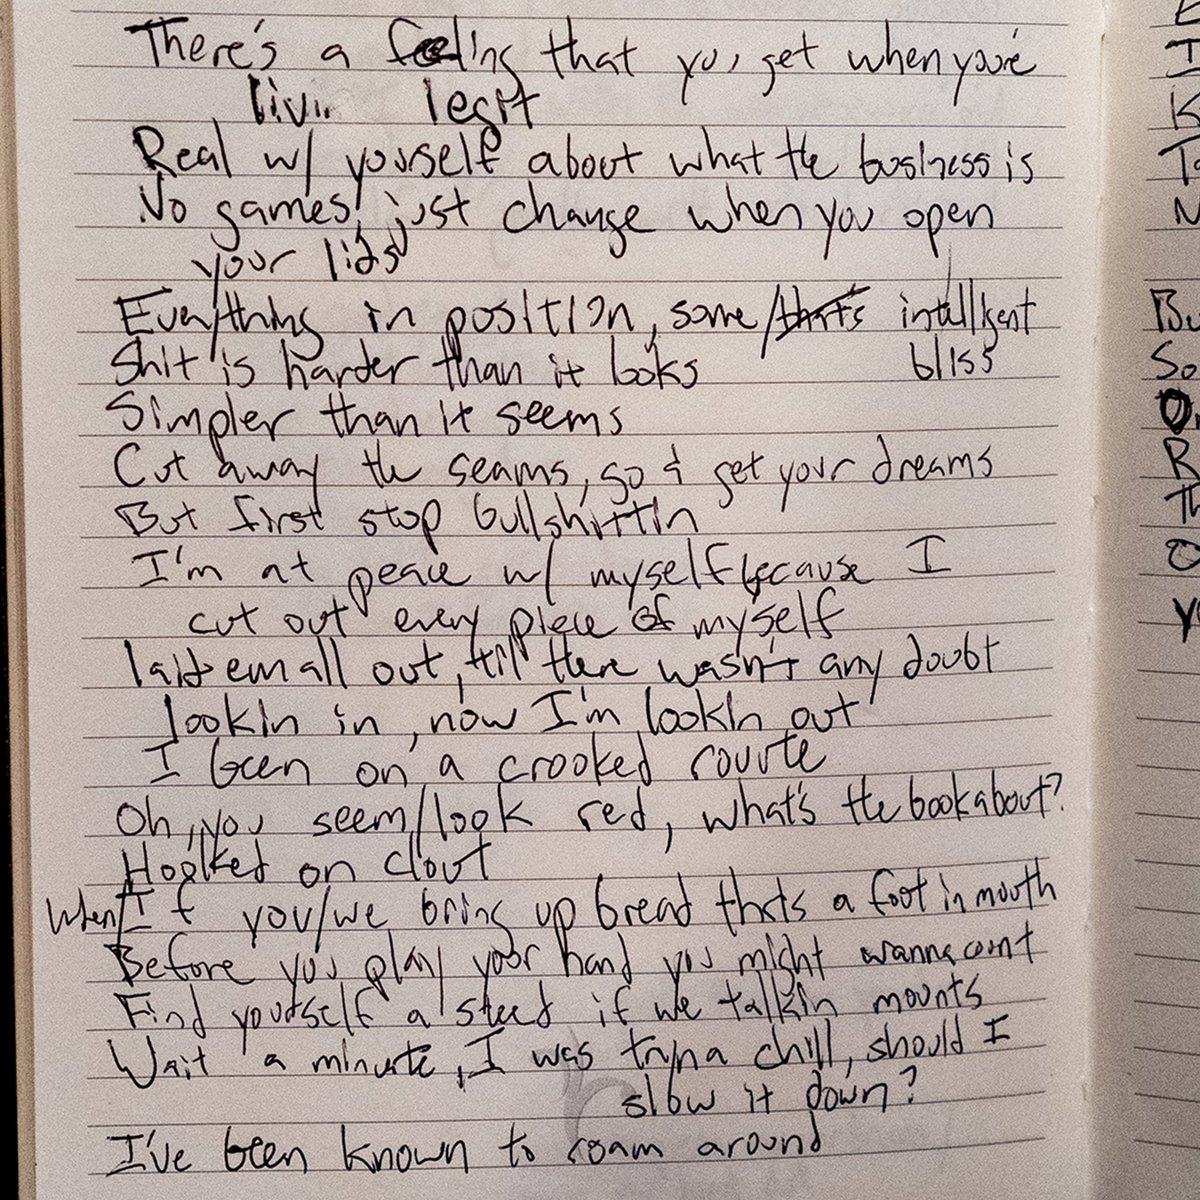 There's a feeling that you get when you're
livin legit
Real w/ yourself about what the business is
No games, just change when you open
your lids
Everything in position, some/that's intelligent
bliss
Shit is harder than it looks
Simpler than it seems
Cut away the seams, go & get your dreams
But first stop bullshittin
I'm at peace w/ myself because I
cut out every piece of myself
laid em all out, til there wasn't any doubt
lookin in, now I'm lookin out
I been on a crooked rouute
Oh, you seem/look red, what's the book about?
Hooked on clout
When/If you/we bring up bread thats a foot in mouth
Before you play your hand you might wanna count
Find yourself a steed if we talkin mounts
Wait a minute, I was tryna chill, should I
slow it down?
I've been known to roam around
Bu
So
R
Th
O